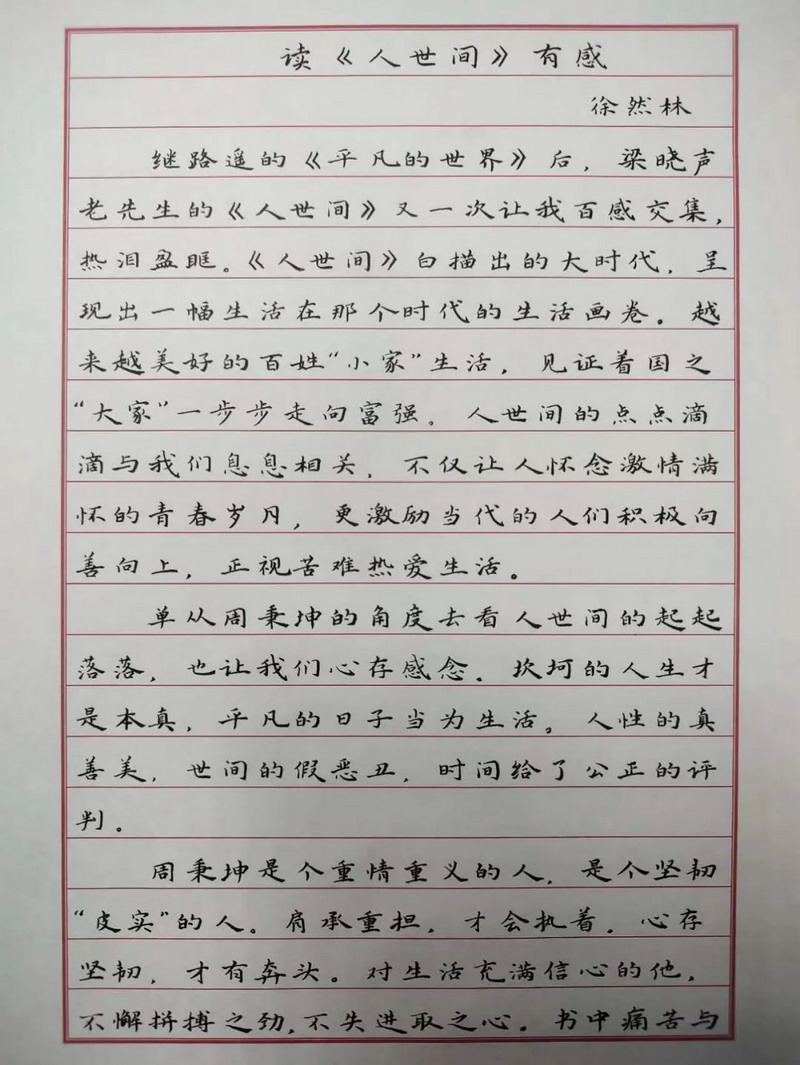 读《人世间》有感
徐然林
继路遥的《平凡的世界》后，梁晓声
老先生的《人世间》又一次让我百感交集，
热泪盈眶。《人世间》白描出的大时代，呈
现出一幅生活在那个时代的生活画卷。越
来越美好的百姓“小家”生活，见证着国之
“大家”一步步走向富强。人世间的点点滴
滴与我们息息相关，不仅让人怀念激情满
怀的青春岁月，更激励当代的人们积极向
善向上，正视苦难热爱生活。
单从周秉坤的角度去看人世间的起起
落落，也让我们心存感念。坎坷的人生才
是本真，平凡的日子当为生活。人性的真
善美，世间的假恶丑，时间给了公正的评
判。
周秉坤是个重情重义的人，是个坚韧
“皮实”的人。肩承重担，才会执着。心存
坚韧，才有奔头。对生活充满信心的他，
不懈拼搏之劲，不失进取之心。书中痛苦与